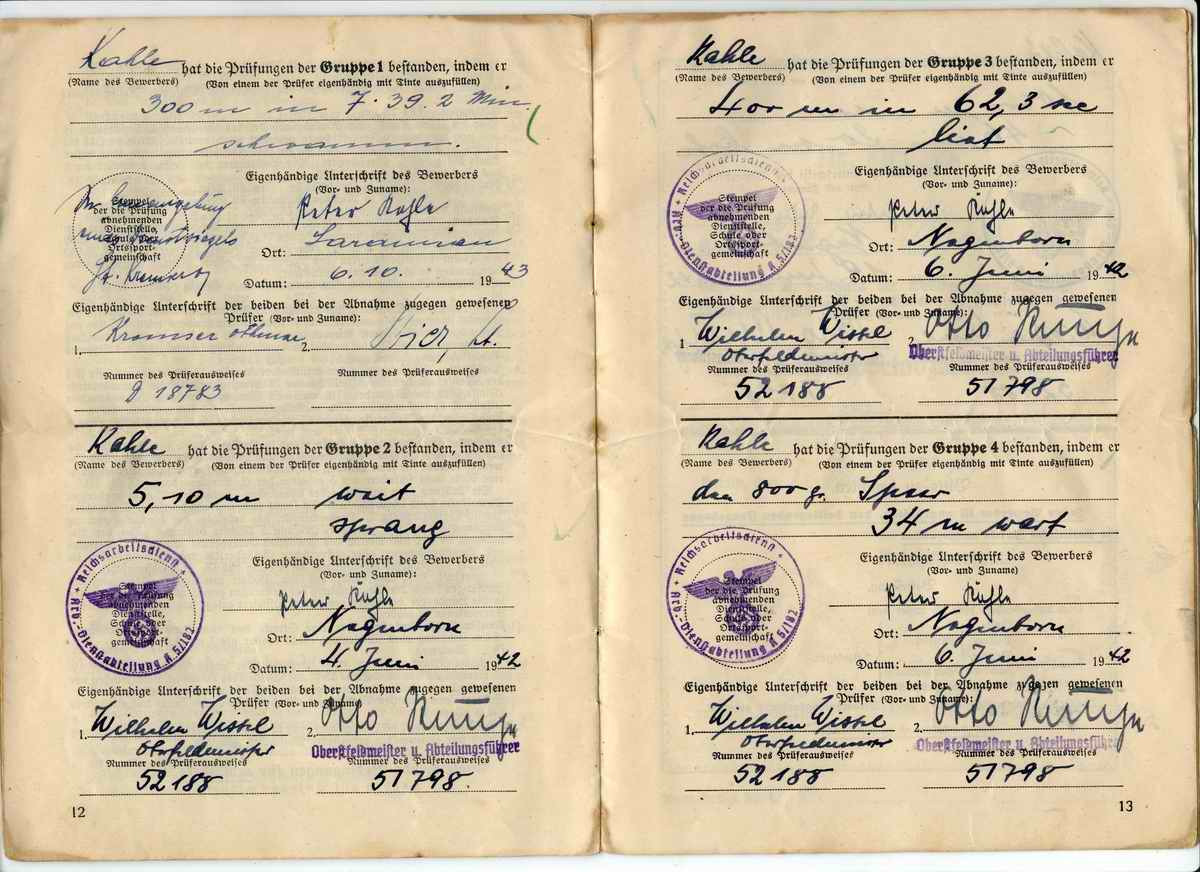 Kahle hat die Prüfungen der Gruppe 1 bestanden, indem er
(Name des Bewerbers) (Von einem der Prüfer eigenhändig mit Tinte auszufüllen)
300 m in 7.39.2 Min.
schwamm.
Eigenhändige Unterschrift des Bewerbers
(Vor- und Zuname):
Stempel
der die Prüfung
abnehmenden
Dienststelle,
Schule oder
Ortssport-
gemeinschaft
Peter Kahle
Ort:
Datum: 6.10. 1943
Eigenhändige Unterschrift der beiden bei der Abnahme zugegen gewesenen
Prüfer (Vor- und Zuname):
1. 2.
Nummer des Prüferausweises Nummer des Prüferausweises
18783
Kahle hat die Prüfungen der Gruppe 2 bestanden, indem er
(Name des Bewerbers) (Von einem der Prüfer eigenhändig mit Tinte auszufüllen)
5,10 m weit
sprang
Eigenhändige Unterschrift des Bewerbers
(Vor- und Zuname):
Reichsarbeitsdienst
RAD.-Dienstabteilung K. 5/182
Stempel
der die Prüfung
abnehmenden
Dienststelle,
Schule oder
Ortssport-
gemeinschaft
Peter Kahle
Ort: Nagenborn
Datum: 4. Juni 1942
Eigenhändige Unterschrift der beiden bei der Abnahme zugegen gewesenen
Prüfer (Vor- und Zuname)
1. Wilhelm Wissel 2. Otto Runge
Oberfeldmeister Oberstfeldmeister u. Abteilungsführer
Nummer des Prüferausweises Nummer des Prüferausweises
52188 51798.
12
Kahle hat die Prüfungen der Gruppe 3 bestanden, indem er
(Name des Bewerbers) (Von einem der Prüfer eigenhändig mit Tinte auszufüllen)
400 m in 62,3 sec
lief
Eigenhändige Unterschrift des Bewerbers
(Vor- und Zuname):
Reichsarbeitsdienst
RAD.-Dienstabteilung K. 5/182
Stempel
der die Prüfung
abnehmenden
Dienststelle,
Schule oder
Ortssport-
gemeinschaft
Peter Kahle
Ort: Nagenborn
Datum: 6. Juni 1942
Eigenhändige Unterschrift der beiden bei der Abnahme zugegen gewesenen
Prüfer (Vor- und Zuname):
1. Wilhelm Wissel 2. Otto Runge
Oberfeldmeister Oberstfeldmeister u. Abteilungsführer
Nummer des Prüferausweises Nummer des Prüferausweises
52188 51798
Kahle hat die Prüfungen der Gruppe 4 bestanden, indem er
(Name des Bewerbers) (Von einem der Prüfer eigenhändig mit Tinte auszufüllen)
den 800 gr. Speer
34 m warf
Eigenhändige Unterschrift des Bewerbers
(Vor- und Zuname)
Reichsarbeitsdienst
RAD.-Dienstabteilung K. 5/182
Stempel
der die Prüfung
abnehmenden
Dienststelle,
Schule oder
Ortssport-
gemeinschaft
Peter Kahle
Ort: Nagenborn
Datum: 6. Juni 1942
Eigenhändige Unterschrift der beiden bei der Abnahme zugegen gewesenen
Prüfer (Vor- und Zuname):
1. Wilhelm Wissel 2. Otto Runge
Oberfeldmeister Oberstfeldmeister u. Abteilungsführer
Nummer des Prüferausweises Nummer des Prüferausweises
52188 51798
13